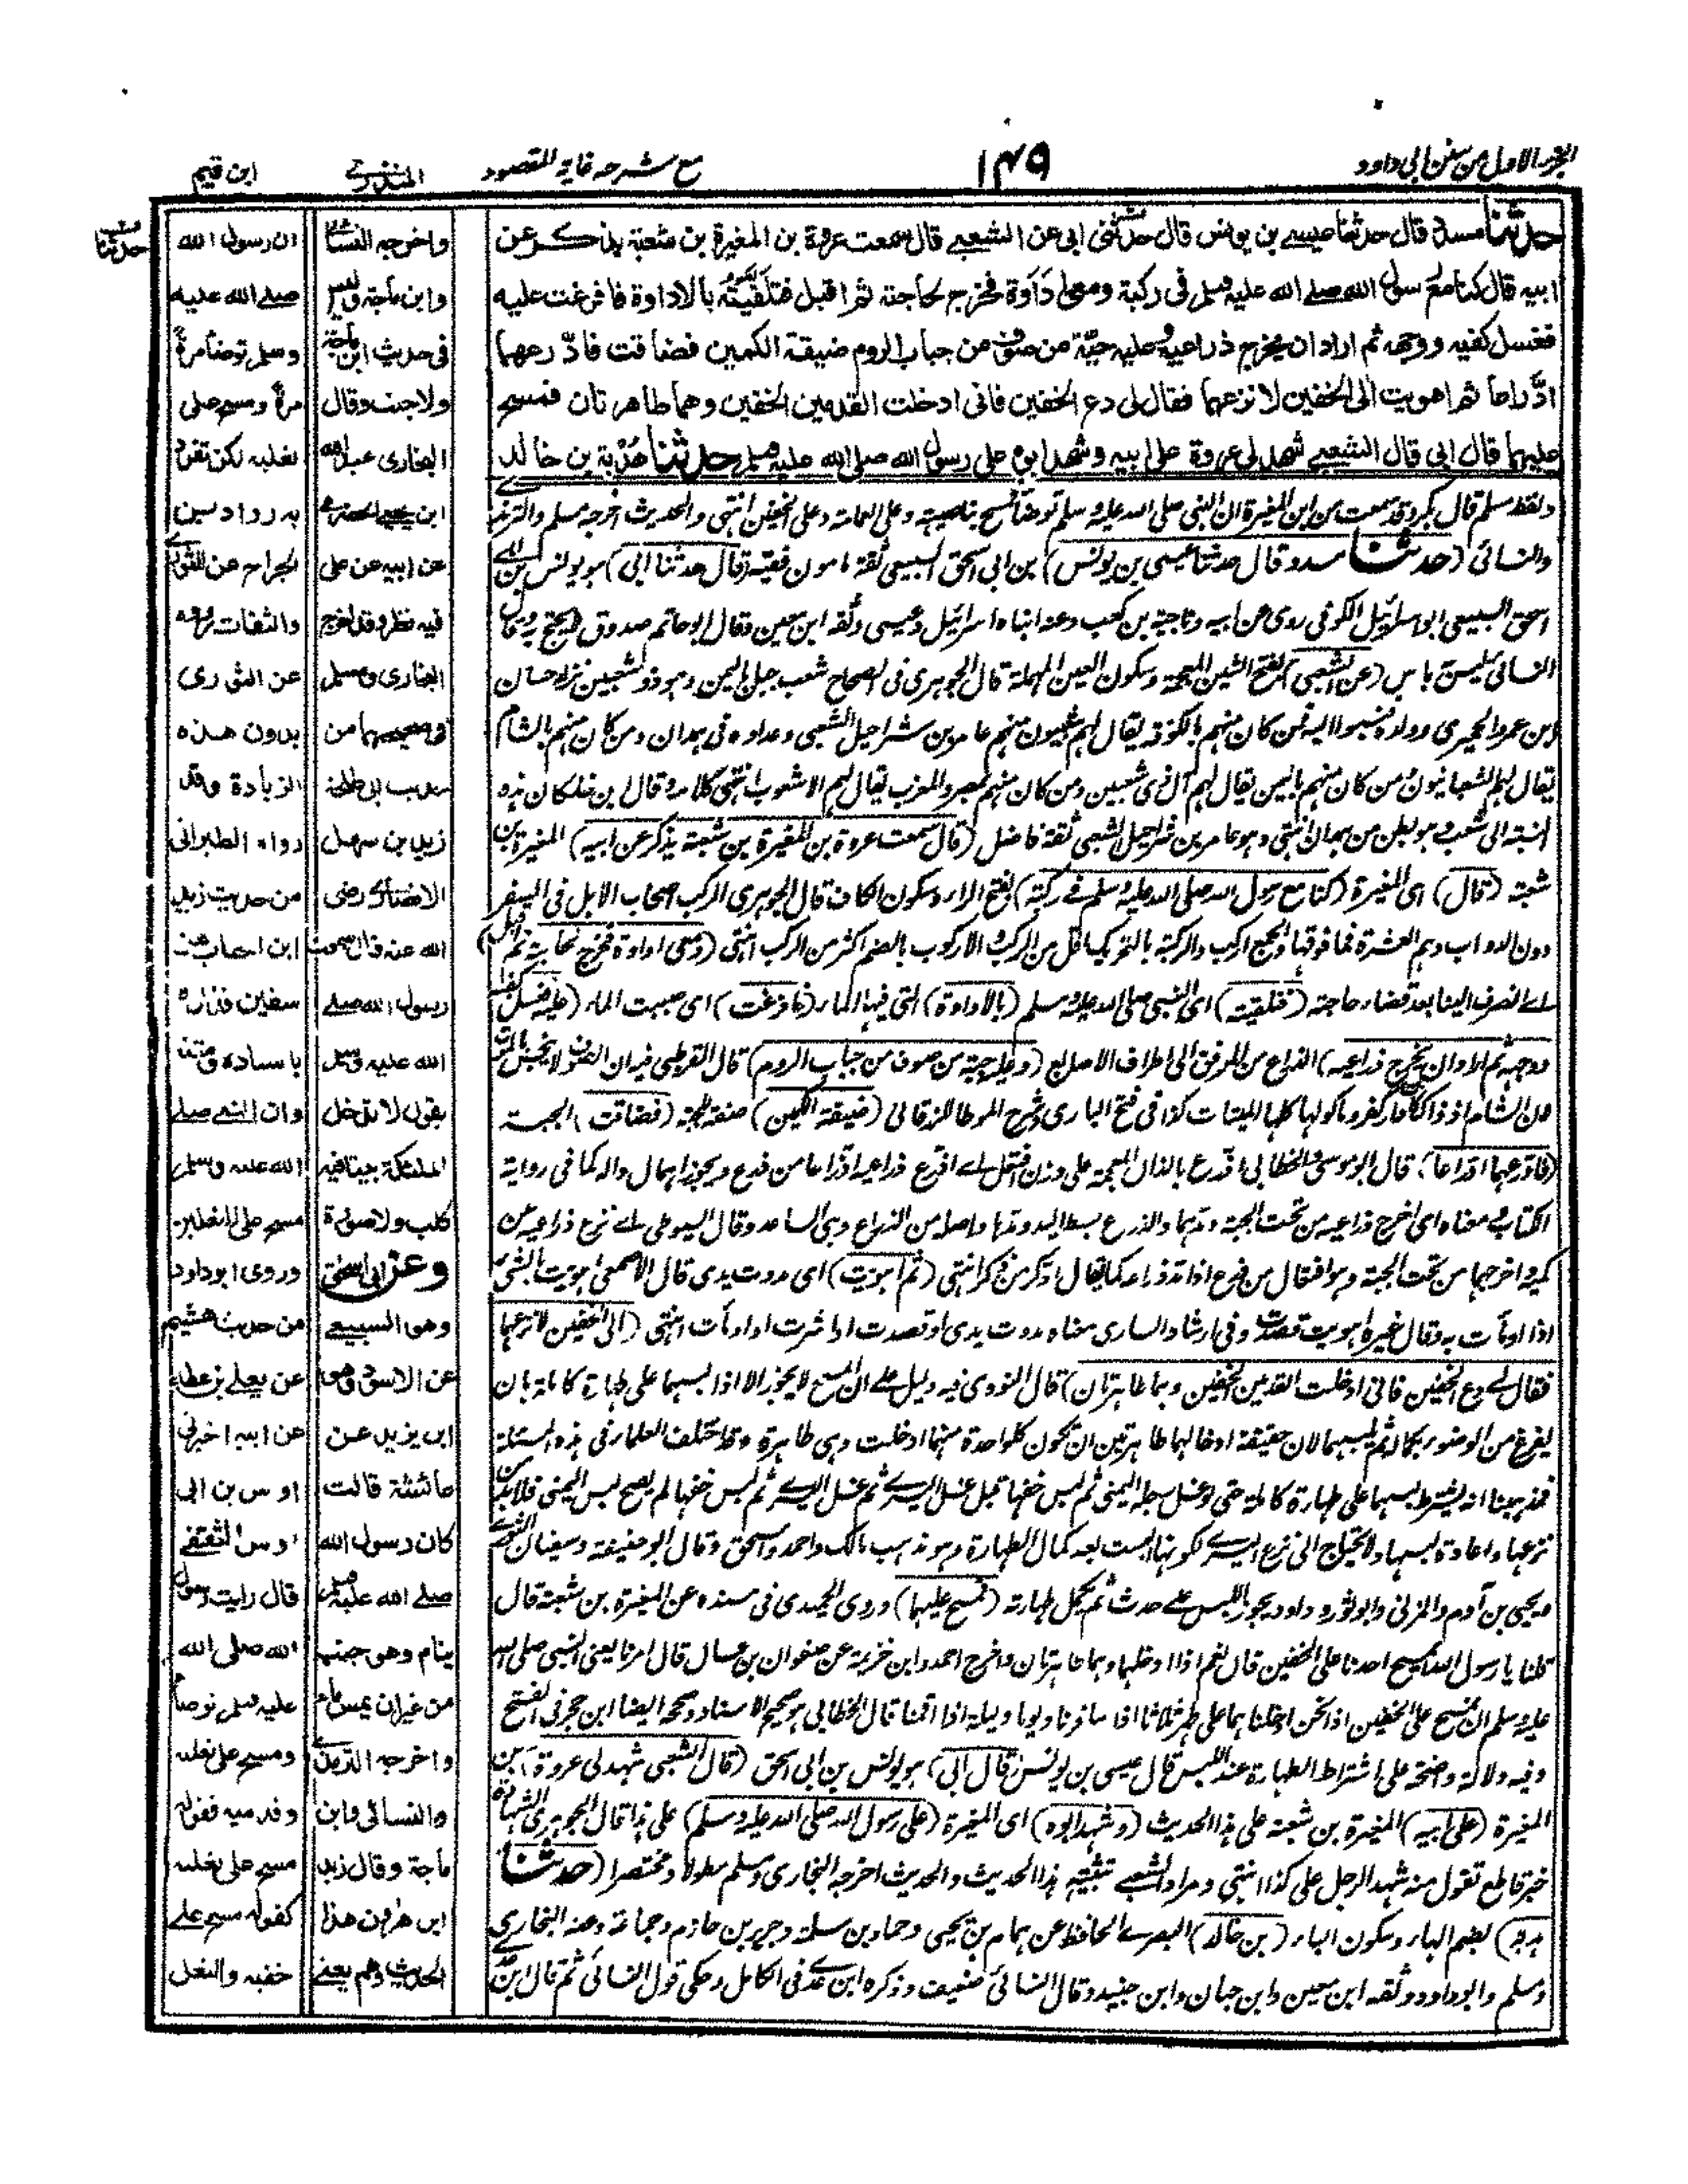 الجزء الاول من سنن ابى داود
١٤٩
مع شرحه غاية المقصود
المنذرى
ابن قيم
حدثنا مسدد قال حدثنا عيسى بن يونس قال حدثنى ابى عن الشعبى قال سمعت عروة بن المغيرة بن شعبة يذكر عن
ابيه قال كنا مع رسول الله صلى الله عليه وسلم فى ركبة ومعى اداوة فخرج لحاجته ثم اقبل فتلقيته بالاداوة فافرغت عليه
فغسل كفيه ووجهه ثم اراد ان يخرج ذراعيه وعليه جبة من صوف من جباب الروم ضيقة الكمين فضاقت فادرعهما
ادراعا ثم اهويت الى الخفين لانزعهما فقال لى دع الخفين فانى ادخلت القدمين الخفين وهما طاهرتان فمسح
عليهما قال ابى قال الشعبى شهد لى عروة على ابيه وشهد ابوه على رسول الله صلى الله عليه وسلم حدثنا هدبة بن خالد
ولفظ مسلم قال بكر وقد سمعت من ابن المغيرة ان النبى صلى الله عليه وسلم توضأ فمسح بناصيته وعلى العمامة وعلى الخفين انتهى والحديث اخرجه مسلم والترمذى
والنسائى (حدثنا مسدد قال حدثنا عيسى بن يونس) بن ابى اسحق السبيعى ثقة مامون فقيه (قال حدثنا ابى) هو يونس بن ابى
اسحق السبيعى ابو اسرائيل الكوفى روى عن ابيه وناجية بن كعب وعنه ابناه اسرائيل وعيسى وثقه ابن معين وقال ابو حاتم صدوق لا يحتج به وقال
النسائى ليس به باس (عن الشعبى) بفتح الشين المعجمة وسكون العين المهملة قال الجوهرى فى الصحاح شعب جبل باليمن وهو ذو شعبين نزله حسان
ابن عمرو الحميرى وولده فنسبوا اليه فمن كان منهم بالكوفة يقال لهم شعبيون منهم عامر بن شراحيل الشعبى وعداده فى همدان ومن كان منهم بالشام
يقال لهم الشعبانيون ومن كان منهم باليمن يقال لهم آل ذى شعبين ومن كان منهم بمصر والمغرب يقال لهم الاشعوب انتهى كلامه وقال ابن خلكان هذه
النسبة الى شعب وهو بطن من همدان انتهى وهو عامر بن شراحيل الشعبى ثقة فاضل (قال سمعت عروة بن المغيرة بن شعبة يذكر عن ابيه) المغيرة بن
شعبة (قال) اى المغيرة (كنا مع رسول الله صلى الله عليه وسلم فى ركبة) بفتح الراء وسكون الكاف قال الجوهرى الركب اصحاب الابل فى السفر
دون الدواب وهم العشرة فما فوقها والجمع اركب والركبة بالتحريك اقل من الركب والاركوب بالضم اكثر من الركب انتهى (ومعى اداوة فخرج لحاجته ثم اقبل)
اى انصرف الينا بعد قضاء حاجته (فتلقيته) اى النبى صلى الله عليه وسلم (بالاداوة) التى فيها الماء (فافرغت) اى صببت الماء (عليه فغسل كفيه
ووجهه ثم اراد ان يخرج ذراعيه) الذراع من المرفق الى اطراف الاصابع (وعليه جبة من صوف من جباب الروم) قال القرطبى فيه ان الصوف لا ينجس بالموت
لان الشام اذ ذاك كانت دار كفر وماكولها كلها الميتات كذا فى فتح البارى وشرح الموطا للزرقانى (ضيقة الكمين) صفة للجبة (فضاقت) الجبة
(فادرعهما ادراعا) قال ابو موسى والخطابى اذرع بالذال المعجمة على وزن افتعل اى اذرع ذراعيه اذراعا من ذرع ويجوز اهمال داله كما فى رواية
الكتاب ومعناه اى اخرج ذراعيه من تحت الجبة ومدهما والذرع بسط اليد ومدها واصله من الذراع وهى الساعد وقال السيوطى اى نزع ذراعيه عن
كميه واخرجهما من تحت الجبة وهو افتعال من ذرع اذا مد ذراعه كما يقال اذكر من ذكر انتهى (ثم اهويت) اى مددت يدى قال الاصمعى اهويت بالشىء
اذا اومأت به وقال غيره اهويت قصدت وفى ارشاد السارى معناه مددت يدى او قصدت او اشرت او اومأت انتهى (الى الخفين لانزعهما
فقال لى دع الخفين فانى ادخلت القدمين الخفين وهما طاهرتان) قال النووى فيه دليل على ان المسح لا يجوز الا اذا لبسهما على طهارة كاملة بان
يفرغ من الوضوء بكماله ثم يلبسهما لان حقيقة ادخالهما طاهرتين ان تكون كل واحدة منهما ادخلت وهى طاهرة وقد اختلف العلماء فى هذه المسئلة
فمذهبنا انه يشترط لبسهما على طهارة كاملة حتى لو غسل رجله اليمنى ثم لبس خفها قبل غسل اليسرى ثم غسل اليسرى ثم لبس خفها لم يصح لبس اليمنى فلا بد من
نزعها واعادة لبسها ولا يحتاج الى نزع اليسرى لكونها البست بعد كمال الطهارة وهو مذهب مالك واحمد واسحق وقال ابو حنيفة وسفيان الثورى
ويحيى بن آدم والمزنى وابو ثور وداود يجوز اللبس على حدث ثم يكمل طهارته (فمسح عليهما) وروى الحميدى فى مسنده عن المغيرة بن شعبة قال
قلنا يا رسول الله ايمسح احدنا على الخفين قال نعم اذا ادخلهما وهما طاهرتان واخرج احمد وابن خزيمة عن صفوان بن عسال قال امرنا يعنى النبى صلى الله
عليه وسلم ان نمسح على الخفين اذا نحن ادخلناهما على طهر ثلاثا اذا سافرنا ويوما وليلة اذا اقمنا قال الخطابى هو صحيح الاسناد وصححه ايضا ابن حجر فى الفتح
وفيه دلالة واضحة على اشتراط الطهارة عند اللبس قال عيسى بن يونس (قال ابى) هو يونس بن ابى اسحق (قال الشعبى شهد لى عروة) بن
المغيرة (على ابيه) المغيرة بن شعبة على هذا الحديث (وشهد ابوه) اى المغيرة (على رسول الله صلى الله عليه وسلم) على هذا قال الجوهرى الشهادة
خبر قاطع تقول منه شهد الرجل على كذا انتهى ومراد الشعبى تثبيت هذا الحديث والحديث اخرجه البخارى ومسلم مطولا ومختصرا (حدثنا
هدبة) بضم الهاء وسكون الباء (بن خالد) البصرى الحافظ عن همام بن يحيى وحماد بن سلمة وجرير بن حازم وجماعة وعنه البخارى
ومسلم وابو داود وثقه ابن معين وابن حبان وابن جنيد وقال النسائى ضعيف وذكره ابن عدى فى الكامل وحكى قول النسائى ثم قال ابن عدى
واخرجه النسائى
وابن ماجة وليس
فى حديث ابن ماجة
ولا جنب وقال
البخارى عبد الله
ابن يحيى الحضرمى
عن ابيه عن على
فيه نظر وقد اخرج
البخارى ومسلم
فى صحيحيهما من
حديث ابى طلحة
زيد بن سهل
الانصارى رضى
الله عنه قال سمعت
رسول الله صلى
الله عليه وسلم
يقول لا تدخل
الملائكة بيتا فيه
كلب ولا صورة
وعن ابى اسحق
وهو السبيعى
عن الاسود وهو
ابن يزيد عن
عائشة قالت
كان رسول الله
صلى الله عليه وسلم
ينام وهو جنب
من غير ان يمس ماء
واخرجه الترمذى
والنسائى وابن
ماجة وقال يزيد
ابن هارون هذا
الحديث وهم يعنى
ان رسول الله
صلى الله عليه
وسلم توضأ مرة
مرة ومسح على
نعليه لكن تفرد
به رواد بن
الجراح عن الثورى
والثقات رووه
عن الثورى
بدون هذه
الزيادة وقد
رواه الطبرانى
من حديث زيد
ابن الحباب عن
سفين فذكره
باسناده ومتنه
وان النبى صلى
الله عليه وسلم
مسح على النعلين
وروى ابو داود
من حديث هشيم
عن يعلى بن عطاء
عن ابيه اخبرنى
اوس بن ابى
اوس الثقفى
قال رايت رسول
الله صلى الله
عليه وسلم توضأ
ومسح على نعليه
وقدميه فقوله
مسح على نعليه
كقوله مسح على
خفيه والنعل
حدثنا